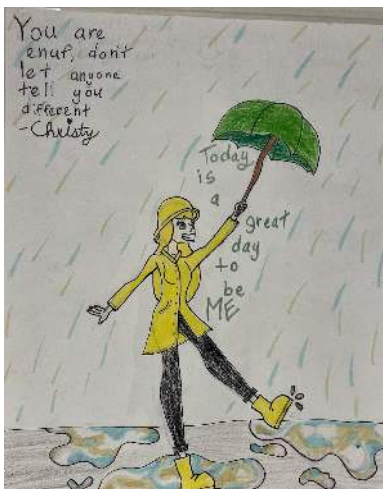 You are
enuf, don't
let anyone
tell you
different
-Christy
Today
is
a
great
day
to
be
ME